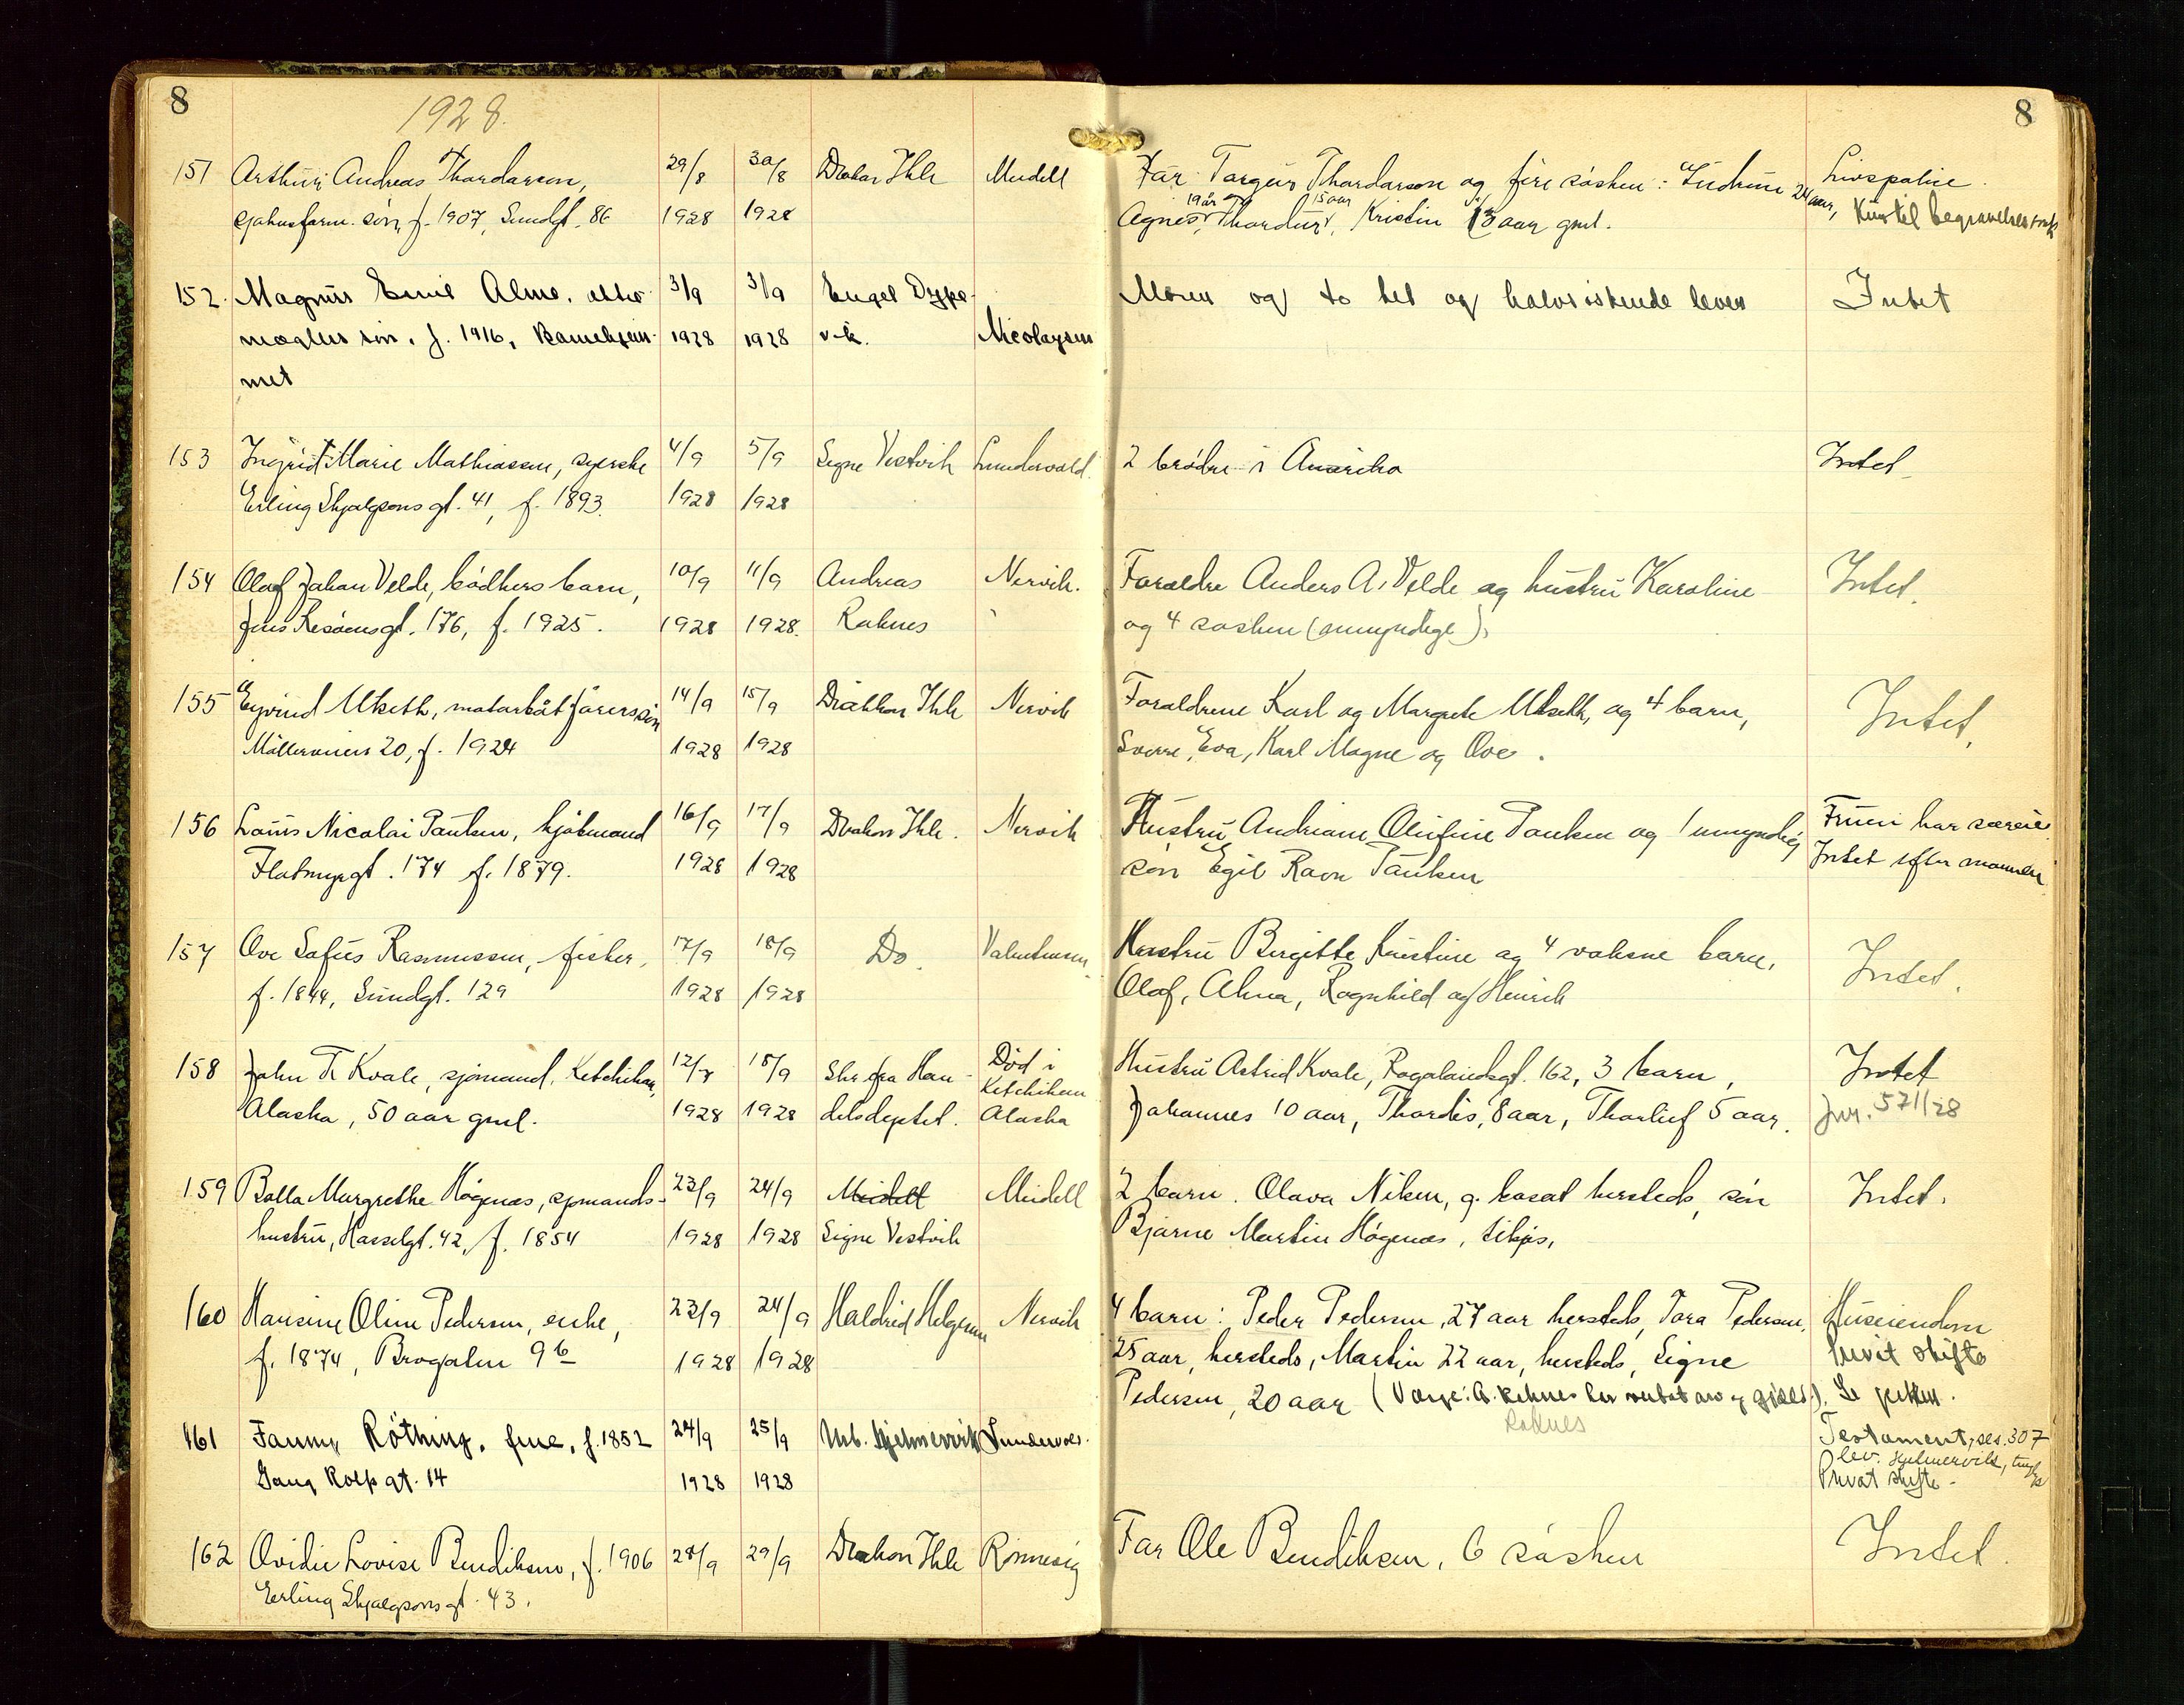 8
1928.
8
151 Arthur Andreas Thordarson, 29/8 30/8 Diakon Ihle Meidell Far Torgeir Thordarson og fire søsken: Gudrun 24 aar, Livspolise.
sjøhusform. søn, f. 1907, Sundgt. 86 1928 1928 Agnes 19 år og Thordur 15 aar, Kristin 13 aar gml. Kun til begravelsesomk
152. Magnus Emil Alme, 3/9 3/9 Engel Dype- Moren og to hel og halvsøskende lever Intet
mægler søn, f. 1916, Barnehjem- 1928 1928 vik. Nicolaysen
met
153 Ingrid Marie Mathiassen, syerske 4/9 5/9 Signe Vestvik Sundevold. 2 brødre i Amerika Intet
Erling Skjalgsons gt. 41, f. 1893. 1928 1928
154 Olaf Johan Velde, bødkers barn, 10/9 11/9 Andreas Nervik. Foreldre Anders A. Velde og hustru Karoline Intet.
Jens Risøensgt. 176, f. 1925. 1928 1928. Raknes og 4 søsken (umyndige).
155 Eyvind Utseth, motorbåtførers søn 14/9 15/9 Diakon Ihle Nervik Foreldrene Karl og Margrete Utseth, og 4 barn, Intet.
Møllerveien 20, f. 1924 1928 1928 Sverre, Eva, Karl Magne og Ove.
156 Louis Nicolai Paulsen, kjøbmand 16/9 17/9 Diakon Ihle. Nervik Hustru Andriane Olufine Paulsen og 1 umyndig Fruen har særeie.
Flotmyrgt. 174 f. 1879. 1928 1928 søn Egil Ravn Paulsen Intet efter mannen
157 Ove Sofus Rasmussen, fisker, 17/9 18/9 Do. Valentinsen Hustru Birgitte Kristine og 4 voksne barn, Intet.
f. 1844, Sundgt. 129 1928 1928 Olaf, Alma, Ragnhild og Henrik
158 John T. Kvale, sjømand, Ketchikan, 12/7 18/9 Skr fra Han- Død i Ketchikan Hustru Astrid Kvale, Rogalandsgt. 162, 3 barn, Intet
Alaska, 50 aar gml. 1928 1928 delsdeptet. Alaska Johannes 10 aar, Thordis, 8 aar, Thorlief 5 aar. Jnr. 571/28
159 Bolla Margrethe Høgenæs, sjømands- 23/9 24/9 Meidell Meidell 2 barn. Olava Nilsen, g. bosat hersteds, søn Intet.
hustru, Hasselgt. 42, f. 1854 1928 1928 Signe Vestvik Bjarne Martin Høgenæs, tilsjøs,
160 Hansine Oline Pedersen, enke, 23/9 24/9 Haldrid Helgesen Nervik 4 barn: Peder Pedersen, 27 aar hersteds, Tora Pedersen, Huseiendom
f. 1874, Brogaten 9b 1928 1928 25 aar, hersteds, Martin 22 aar, hersteds, Signe Privat skifte
Pedersen, 20 aar (Verge: A. Raknes har arv og gjæld). Se
Raknes
161 Fanny Røthing, frue, f. 1852 24/9 25/9 Hjelmervik Sundevold. Testament, des. 307
Gang Rolfs gt. 14 1928 1928 lev. Hjelmervik,
Privat skifte.
162 Ovidie Lovise Bendiksen, f. 1906 28/9 29/9 Diakon Ihle Rønnevig Far Ole Bendiksen, 6 søsken Intet.
Erling Skjalgsons gt. 43.